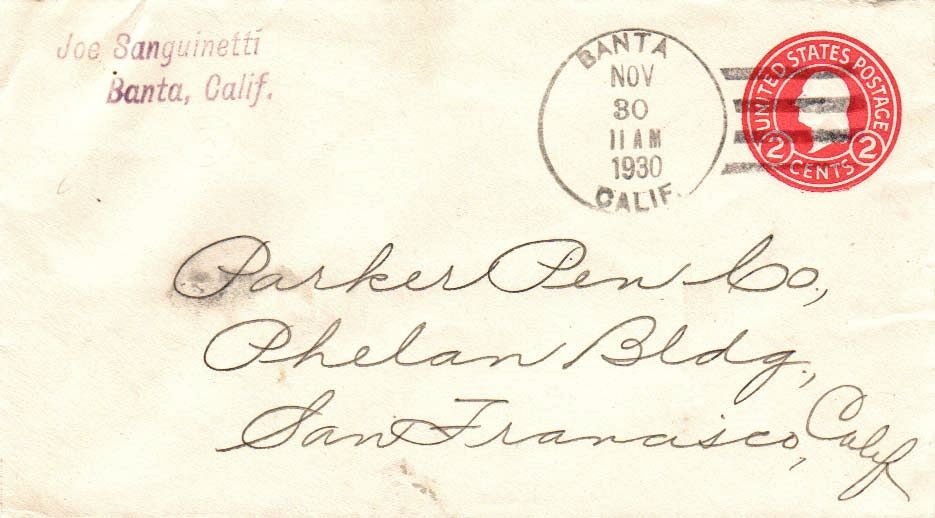 Joe Sanguinetti
Banta, Calif.
BANTA
NOV
30
11 AM
1930
CALIF.
UNITED STATES POSTAGE
2 CENTS 2
Parker Pen Co.,
Phelan Bldg.,
San Francisco, Calif